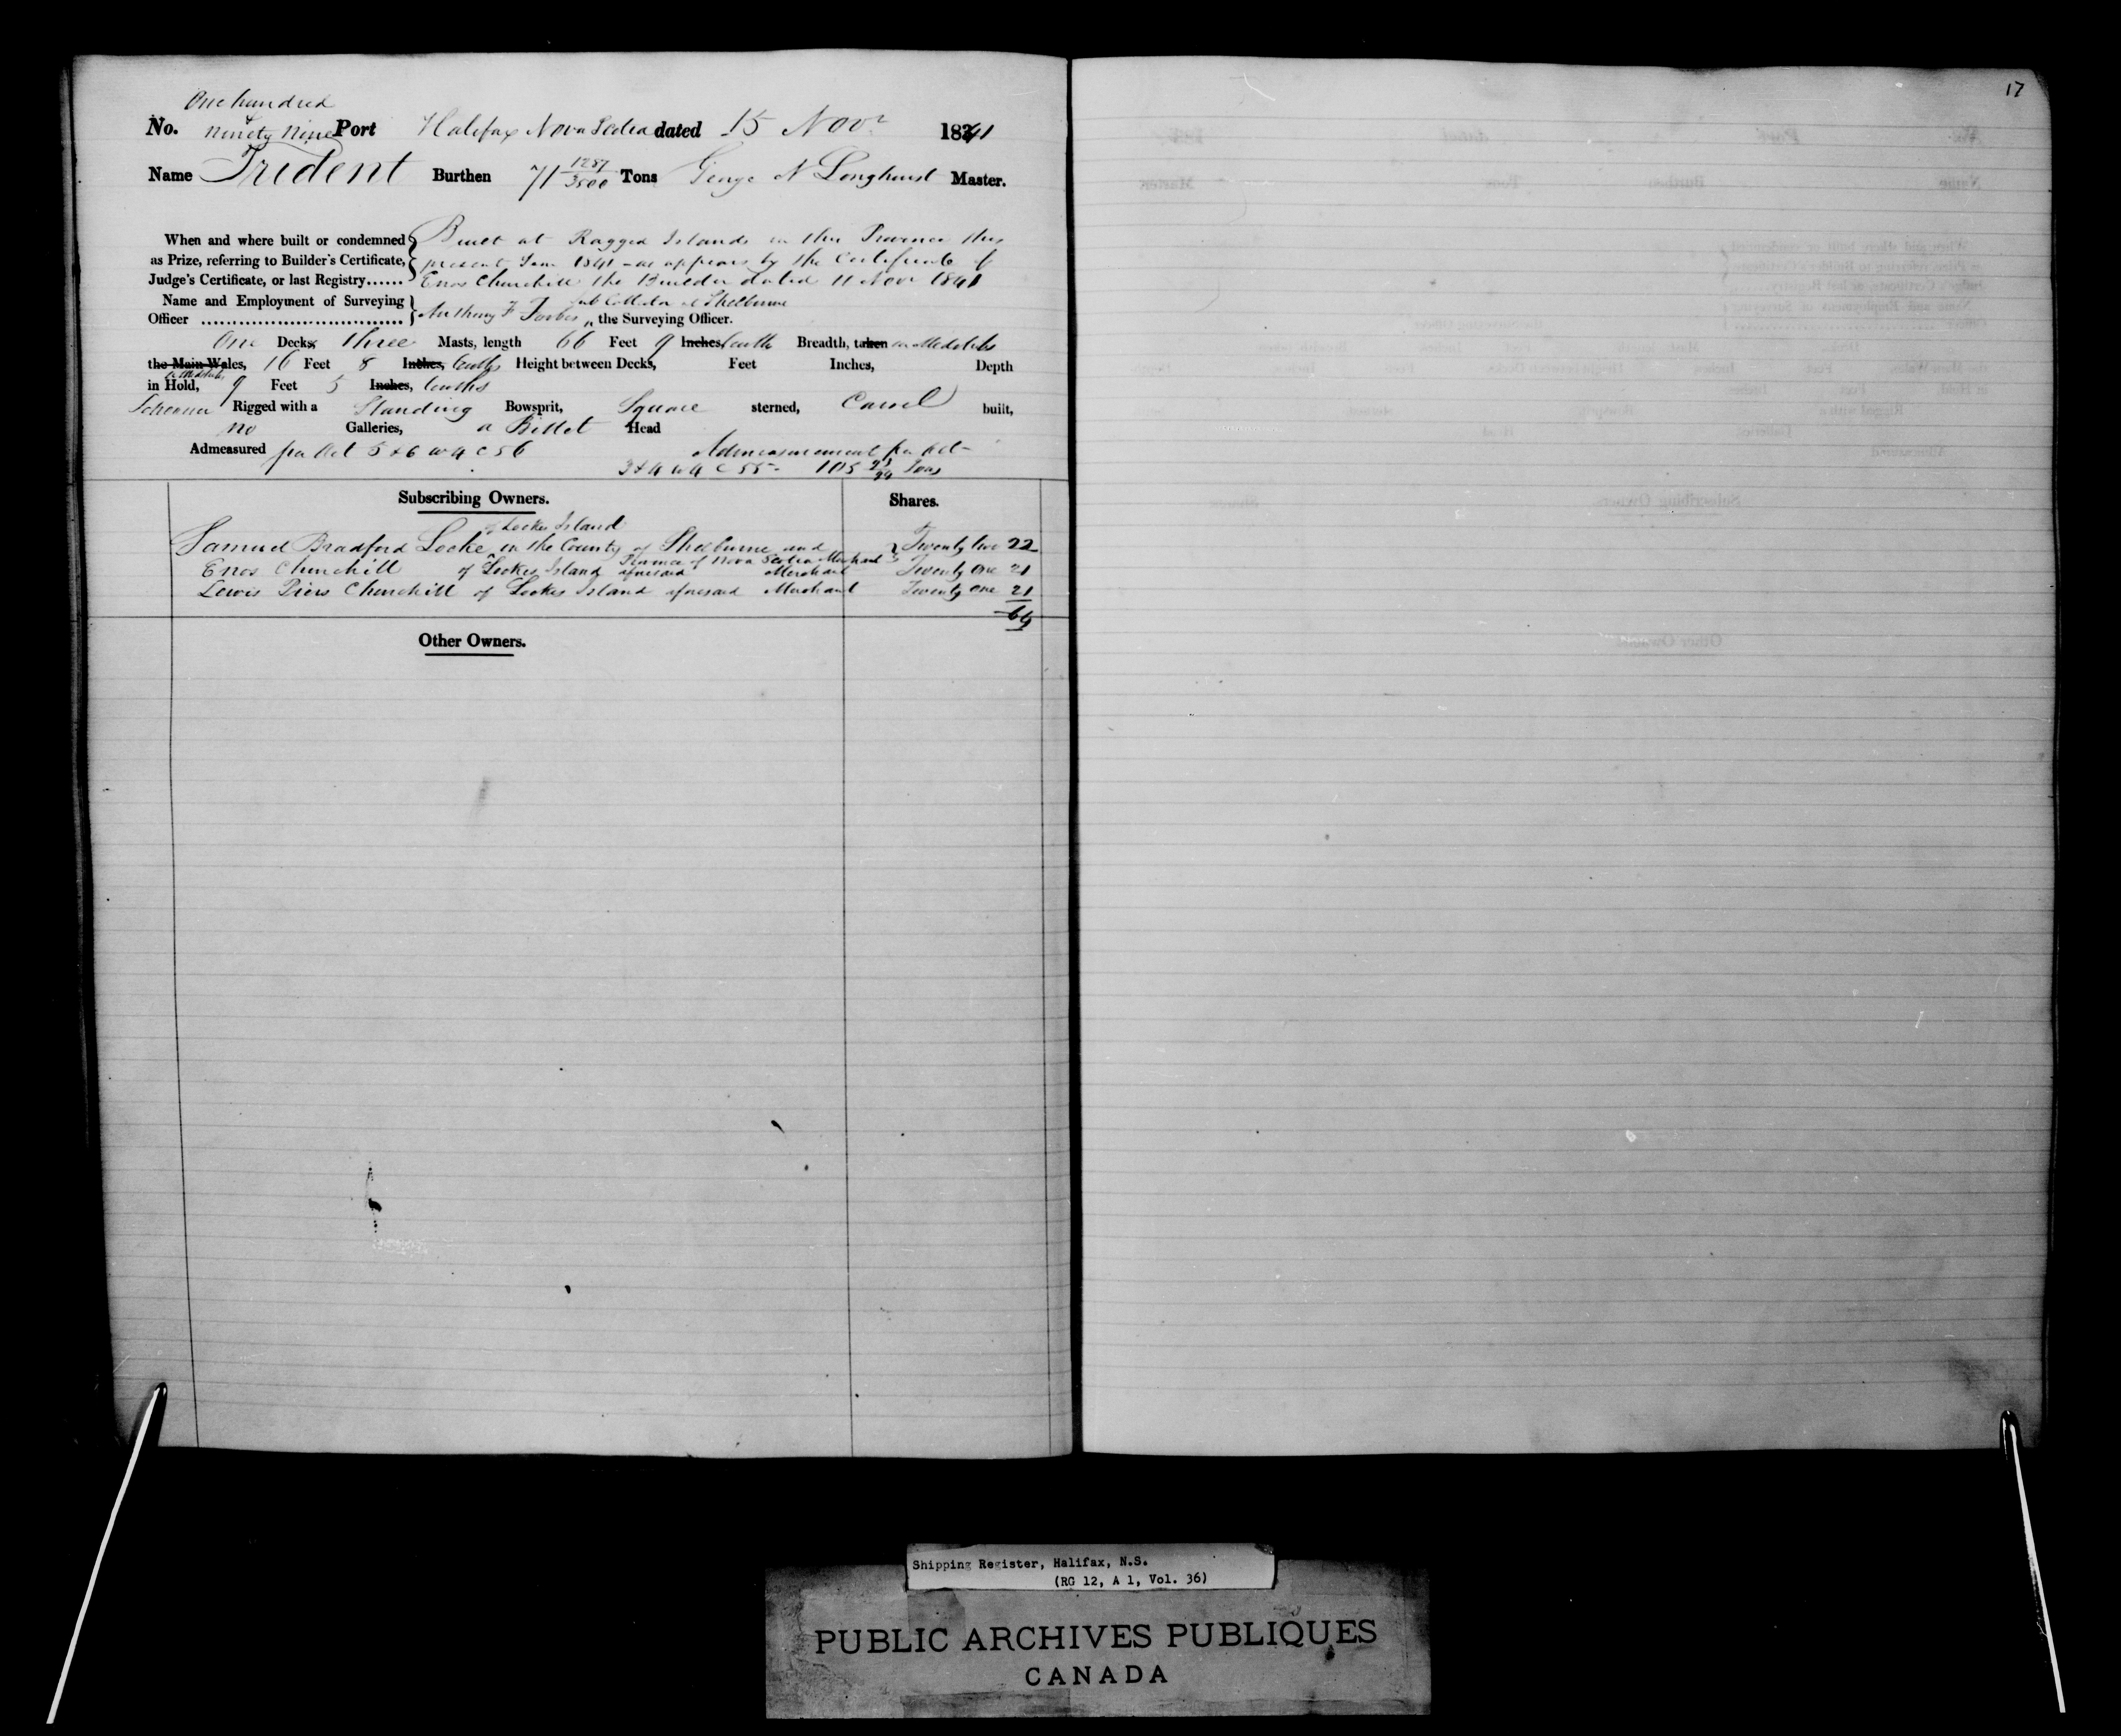 17
One hundred
No. & ninety nine Port Halifax Nova Scotia dated 15 Novr 1841
Name Trident Burthen 71 1287/3500 Tons George N Longhurst Master.
When and where built or condemned Built at Ragged Islands in this Province this
as Prize, referring to Builder's Certificate, present Year 1841 - as appears by the Certificate of
Judge's Certificate, or last Registry...... Enos Churchill the Builder dated 11 Novr 1841
Name and Employment of Surveying Sub Collector at Shelburne
Officer .................................. Anthony F Forbes, the Surveying Officer.
One Decks, Three Masts, length 66 Feet 9 Inches, tenths Breadth, taken in Midships
the Main Wales, 16 Feet 8 Inches, tenths Height between Decks, Feet Inches, Depth
at Midships
in Hold, 9 Feet 5 Inches, tenths
Schooner Rigged with a Standing Bowsprit, Square sterned, Carvel built,
no Galleries, a Billet Head
Admeasured per Act 5 & 6 W 4 C 56 Admeasurement per Act
3 & 4 W 4 C 55 - 105 Tons
Subscribing Owners. Shares.
of Lockes Island
Samuel Bradford Locke in the County of Shelburne and Twenty two 22
Province of Nova Scotia Merchant
Enos Churchill of Lockes Island aforesaid Merchant Twenty One 21
Lewis Piers Churchill of Lockes Island aforesaid Merchant Twenty One 21
64
Other Owners.
Shipping Register, Halifax, N.S.
(RG 12, A 1, Vol. 36)
PUBLIC ARCHIVES PUBLIQUES
CANADA